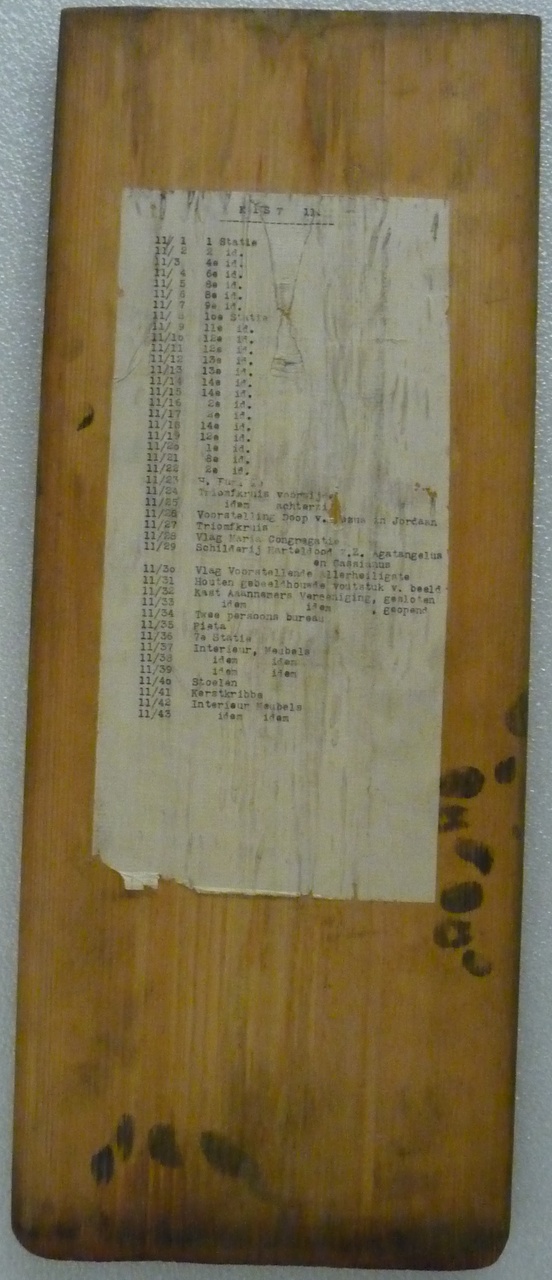 KIST 11.
11/ 1 1 Statie
11/ 2 2 id.
11/3 4e id.
11/ 4 6e id.
11/ 5 6e id.
11/ 6 8e id.
11/ 7 9e id.
11/ 8 10e Statie
11/ 9 11e id.
11/1o 12e id.
11/11 12e id.
11/12 13e id.
11/13 13e id.
11/14 14e id.
11/15 14e id.
11/16 2e id.
11/17 2e id.
11/18 14e id.
11/19 12e id.
11/2o 1e id.
11/21 8e id.
11/22 2e id.
11/23 H.
11/24 Triomfkruis voorzijde
11/25 idem achterzijde
11/26 Voorstelling Doop v. Jezus in Jordaan
11/27 Triomfkruis
11/28 Vlag Maria Congregatie
11/29 Schilderij Marteldood Agatangelus
en Cassianus
11/3o Vlag Voorstellende Allerheiligste
11/31 Houten gebeeldhouwde voutstuk v. beeld
11/32 Kast Aannemers Vereeniging, gesloten
11/33 idem idem , geopend
11/34 Twee persoons bureau
11/35 Pieta
11/36 7e Statie
11/37 Interieur, Meubels
11/38 idem idem
11/39 idem idem
11/4o Stoelen
11/41 Kerstkribbe
11/42 Interieur Meubels
11/43 idem idem